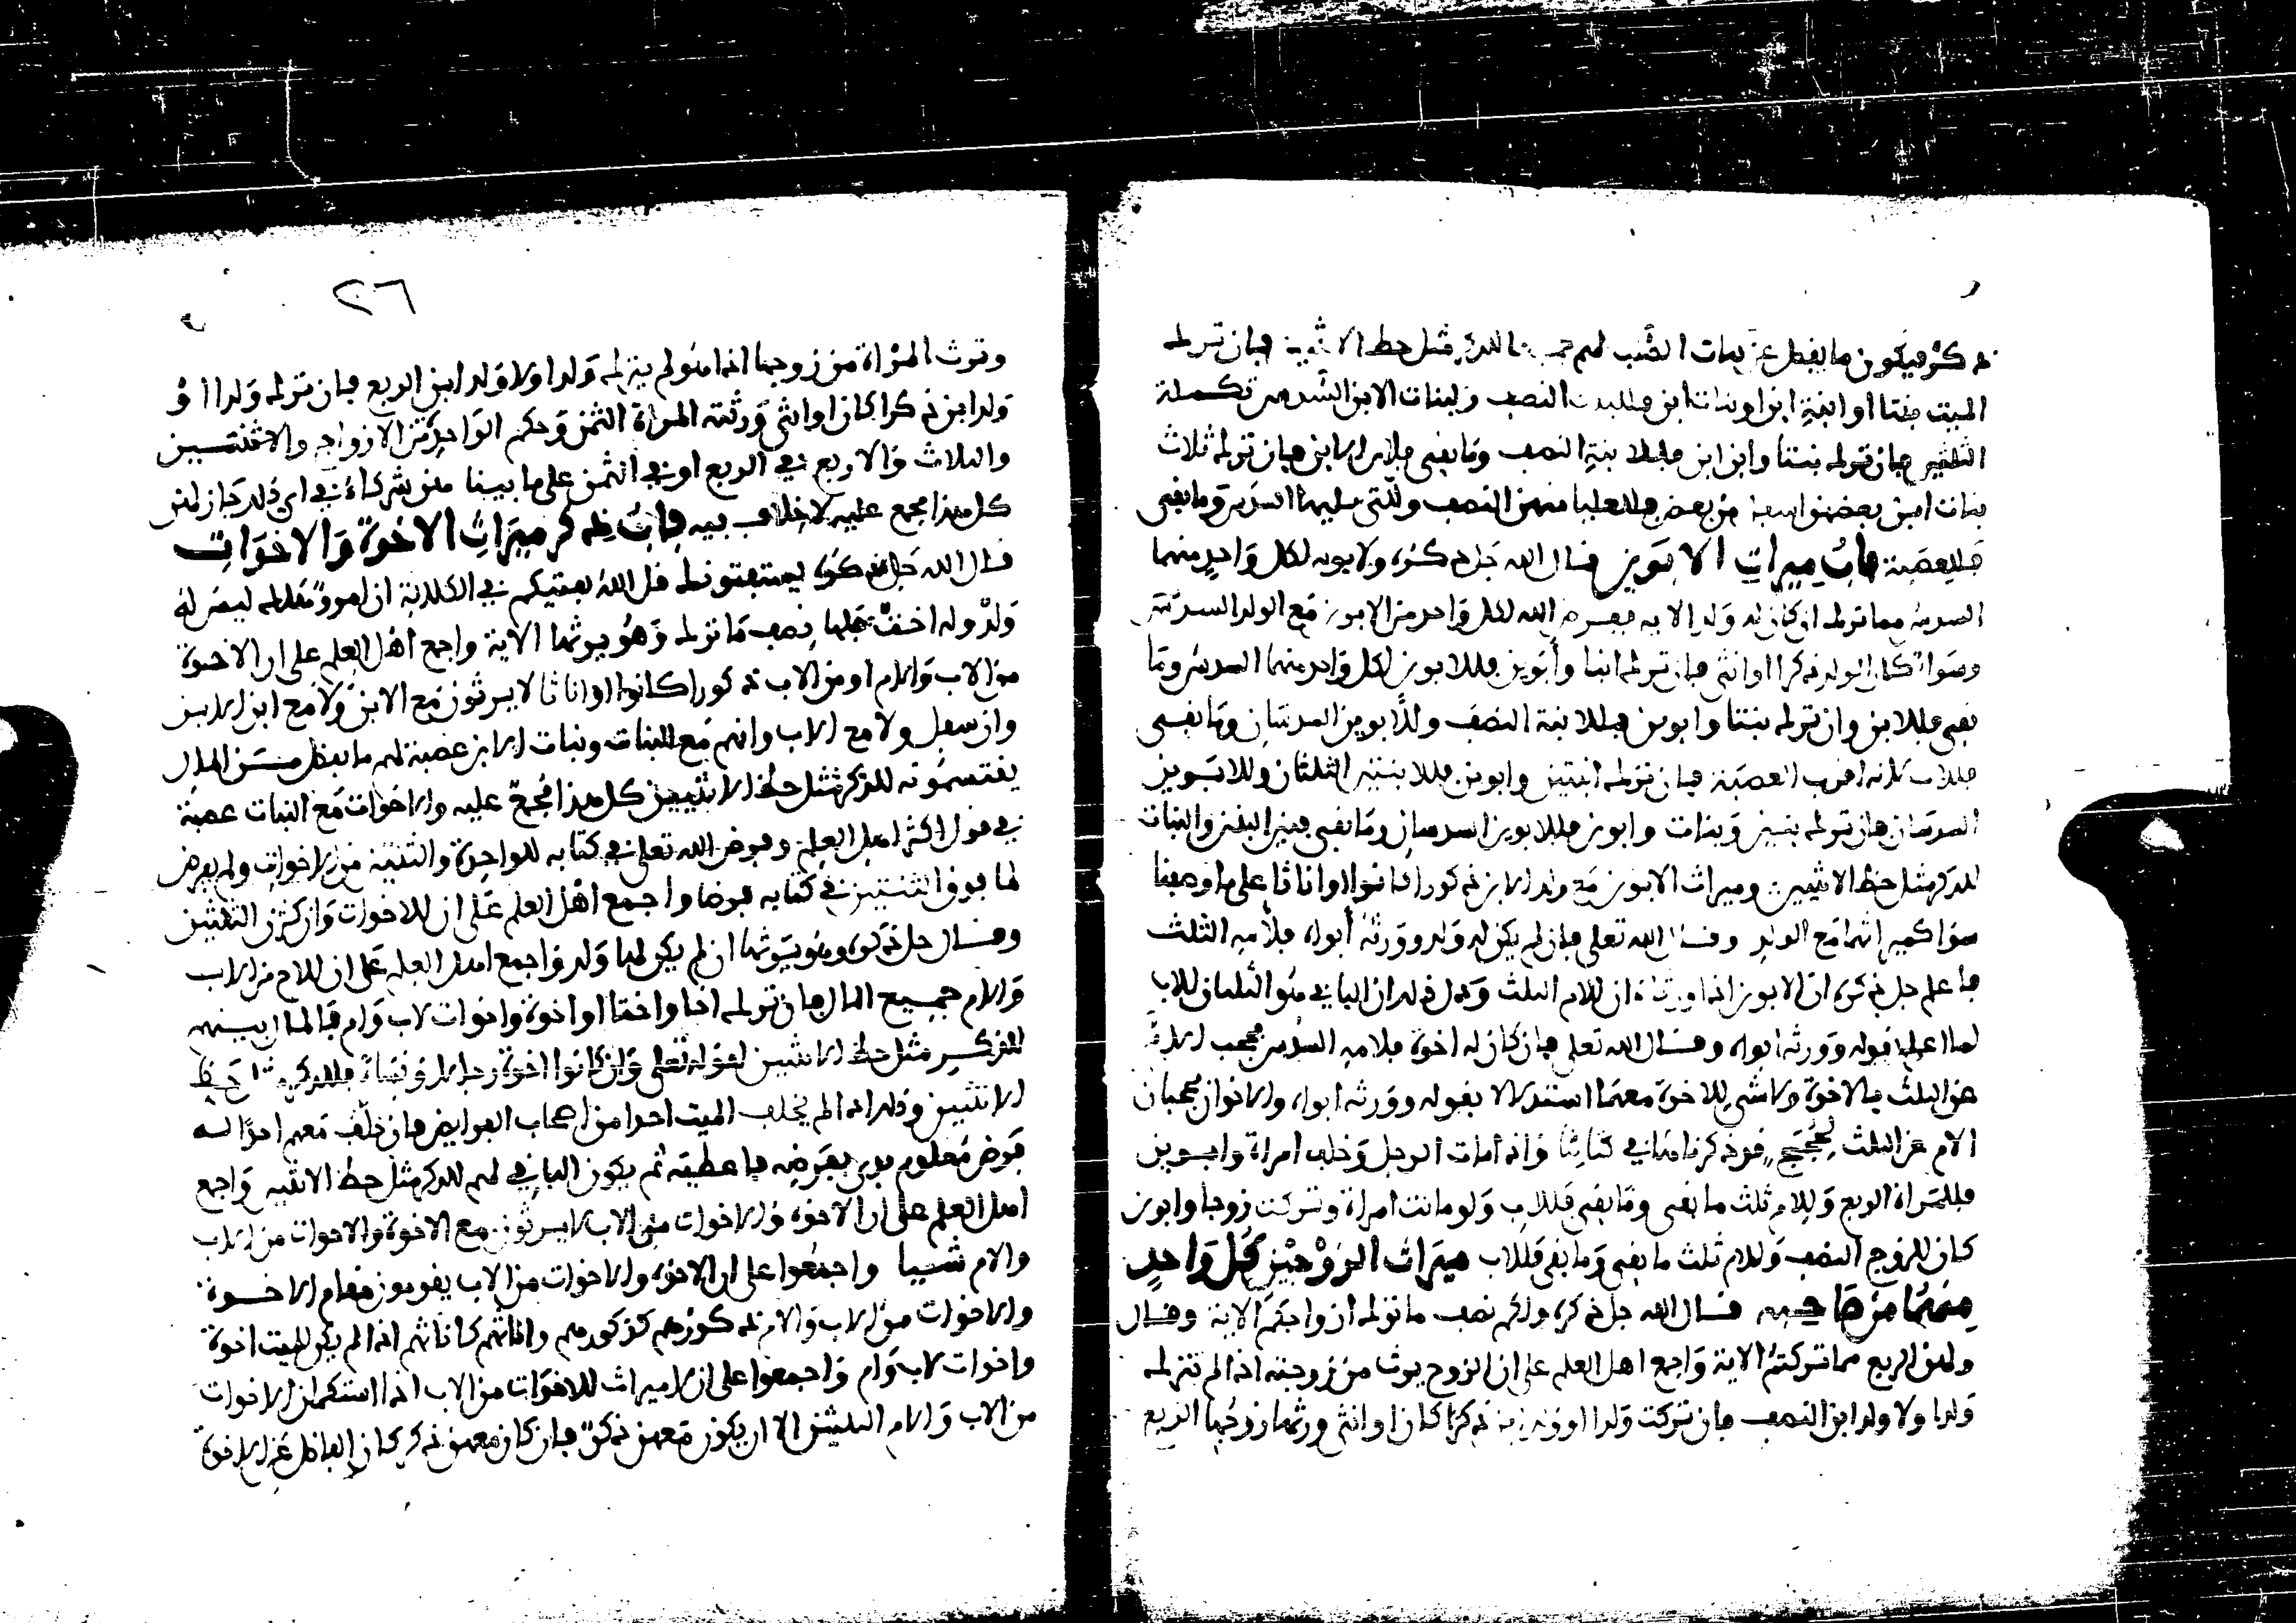 ذكر فيكون ما يفضل عن بنات الصلب لهم جميعا للذكر مثل حظ الانثيين فان ترك
الميت بنتا او ابنة ابن او بنات ابن فللبنت النصف ولبنات الابن السدس تكملة
الثلثين فان ترك بنتا وابن ابن فللابنة النصف وما بقي فلابن الابن فان ترك ثلاث
بنات ابن بعضهن اسفل من بعض فللعليا منهن النصف وللتي تليها السدس وما بقي
فللعصبة باب ميراث الابوين قال الله جل ذكره ولابويه لكل واحد منهما
السدس مما ترك ان كان له ولد الاية ففرض الله لكل واحد من الابوين مع الولد السدس
وسواء كان الولد ذكرا او انثى فان ترك ابنا وأبوين فللابوين لكل واحد منهما السدس وما
بقي فللابن وان ترك بنتا وابوين فللابنة النصف وللابوين السدسان وما بقي
فللاب لانه اقرب العصبة فان ترك ابنتين وابوين فللابنتين الثلثان وللابوين
السدسان فان ترك بنين وبنات وابوين فللابوين السدسان وما بقي فبين البنين والبنات
للذكر مثل حظ الانثيين وميراث الابوين مع ولد الابن ذكورا كانوا او اناثا على ما وصفنا
سواء كميراثهما مع الولد وقال الله تعلى فان لم يكن له ولد وورثه أبواه فلأمه الثلث
فاعلم جل ذكره ان الابوين اذا ورثاه ان للام الثلث ودل ذلك ان الباقي هو الثلثان للاب
لما اعلم قوله وورثه ابواه وقال الله تعلى فان كان له اخوة فلامه السدس فحجب الام
عن الثلث بالاخوة ولا شيء للاخوة معهما استدلالا بقوله وورثه ابواه والاخوان يحجبان
الام عن الثلث لحجج قد ذكرناها في كتابنا واذا مات الرجل وخلف امراة وابوين
فللمراة الربع وللام ثلث ما بقي وما بقي فللاب ولو ماتت امراة وتركت زوجا وابوين
كان للزوج النصف وللام ثلث ما بقي وما بقي فللاب ميراث الزوجين كل واحد
منهما من صاحبه قال الله جل ذكره ولكم نصف ما ترك ازواجكم الاية وقال
ولهن الربع مما تركتم الاية واجمع اهل العلم على ان الزوج يرث من زوجته اذا لم تترك
ولدا ولا ولد ابن النصف فان تركت ولدا او ولد ابن ذكرا كان او انثى ورثها زوجها الربع
٢٦
وترث المراة من زوجها اذا هو لم يترك ولدا ولا ولد ابن الربع فان ترك ولدا او
ولد ابن ذكرا كان او انثى ورثته المراة الثمن وحكم الواحدة من الازواج والاثنتين
والثلاث والاربع في الربع او في الثمن على ما بينا هن شركاء في اي ذلك كان لهن
كل هذا مجمع عليه لاخلاف فيه باب ذكر ميراث الاخوة والاخوات
قال الله جل ذكره يستفتونك قل الله يفتيكم في الكلالة ان امرؤ هلك ليس له
ولد وله اخت فلها نصف ما ترك وهو يرثها الاية واجمع اهل العلم على ان الاخوة
من الاب والام او من الاب ذكورا كانوا او اناثا لا يرثون مع الابن ولا مع ابن الابن
وان سفل ولا مع الاب وانهم مع البنات وبنات الابن عصبة لهم ما يفضل من المال
يقتسمونه للذكر مثل حظ الانثيين كل هذا مجمع عليه والاخوات مع البنات عصبة
في قول اكثر اهل العلم وفرض الله تعلى في كتابه للواحدة والثنتين من الاخوات ولم يفرض
لما فوق اثنتين في كتابه فرضا واجمع اهل العلم على ان للاخوات وان كثرن الثلثين
وقال جل ذكره وهو يرثها ان لم يكن لها ولد واجمع اهل العلم على ان للاخ من الاب
والام جميع المال فان ترك اخا واختا او اخوة واخوات لاب وام فالمال بينهم
للذكر مثل حظ الانثيين لقوله تعلى وان كانوا اخوة رجالا ونساء فللذكر مثل حظ
الانثيين وذلك اذا لم يخلف الميت احدا من اصحاب الفرايض فان خلف معهم احدا له
فرض معلوم بدئ بفرضه فاعطيه ثم يكون الباقي لهم للذكر مثل حظ الانثيين واجمع
اهل العلم على ان الاخوة والاخوات من الاب لا يرثون مع الاخوة والاخوات من الاب
والام شيا واجمعوا على ان الاخوة والاخوات من الاب يقومون مقام الاخوة
والاخوات من الاب والام ذكورهم كذكورهم واناثهم كاناثهم اذا لم يكن للميت اخوة
واخوات لاب وام واجمعوا على ان لا ميراث للاخوات من الاب اذا استكملن الاخوات
من الاب والام الثلثين الا ان يكون معهن ذكر فان كان معهن ذكر كان الفاضل عن الاخوة